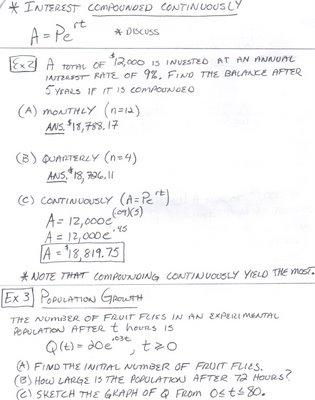 * INTEREST COMPOUNDED CONTINUOUSLY
A = Pe^rt   * DISCUSS
Ex 2 A TOTAL OF $12,000 IS INVESTED AT AN ANNUAL
INTEREST RATE OF 9%. FIND THE BALANCE AFTER
5 YEARS IF IT IS COMPOUNDED
(A) MONTHLY (n=12)
ANS. $18,788.17
(B) QUARTERLY (n=4)
ANS. $18,726.11
(C) CONTINUOUSLY (A=Pe^rt)
A = 12,000e^(.09)(5)
A = 12,000e^.45
A = $18,819.75
* NOTE THAT COMPOUNDING CONTINUOUSLY YIELD THE MOST.
Ex 3 POPULATION GROWTH
THE NUMBER OF FRUIT FLIES IN AN EXPERIMENTAL
POPULATION AFTER t HOURS IS
Q(t) = 20e^.03t, t ≥ 0
(A) FIND THE INITIAL NUMBER OF FRUIT FLIES.
(B) HOW LARGE IS THE POPULATION AFTER 72 HOURS?
(C) SKETCH THE GRAPH OF Q FROM 0 ≤ t ≤ 80.